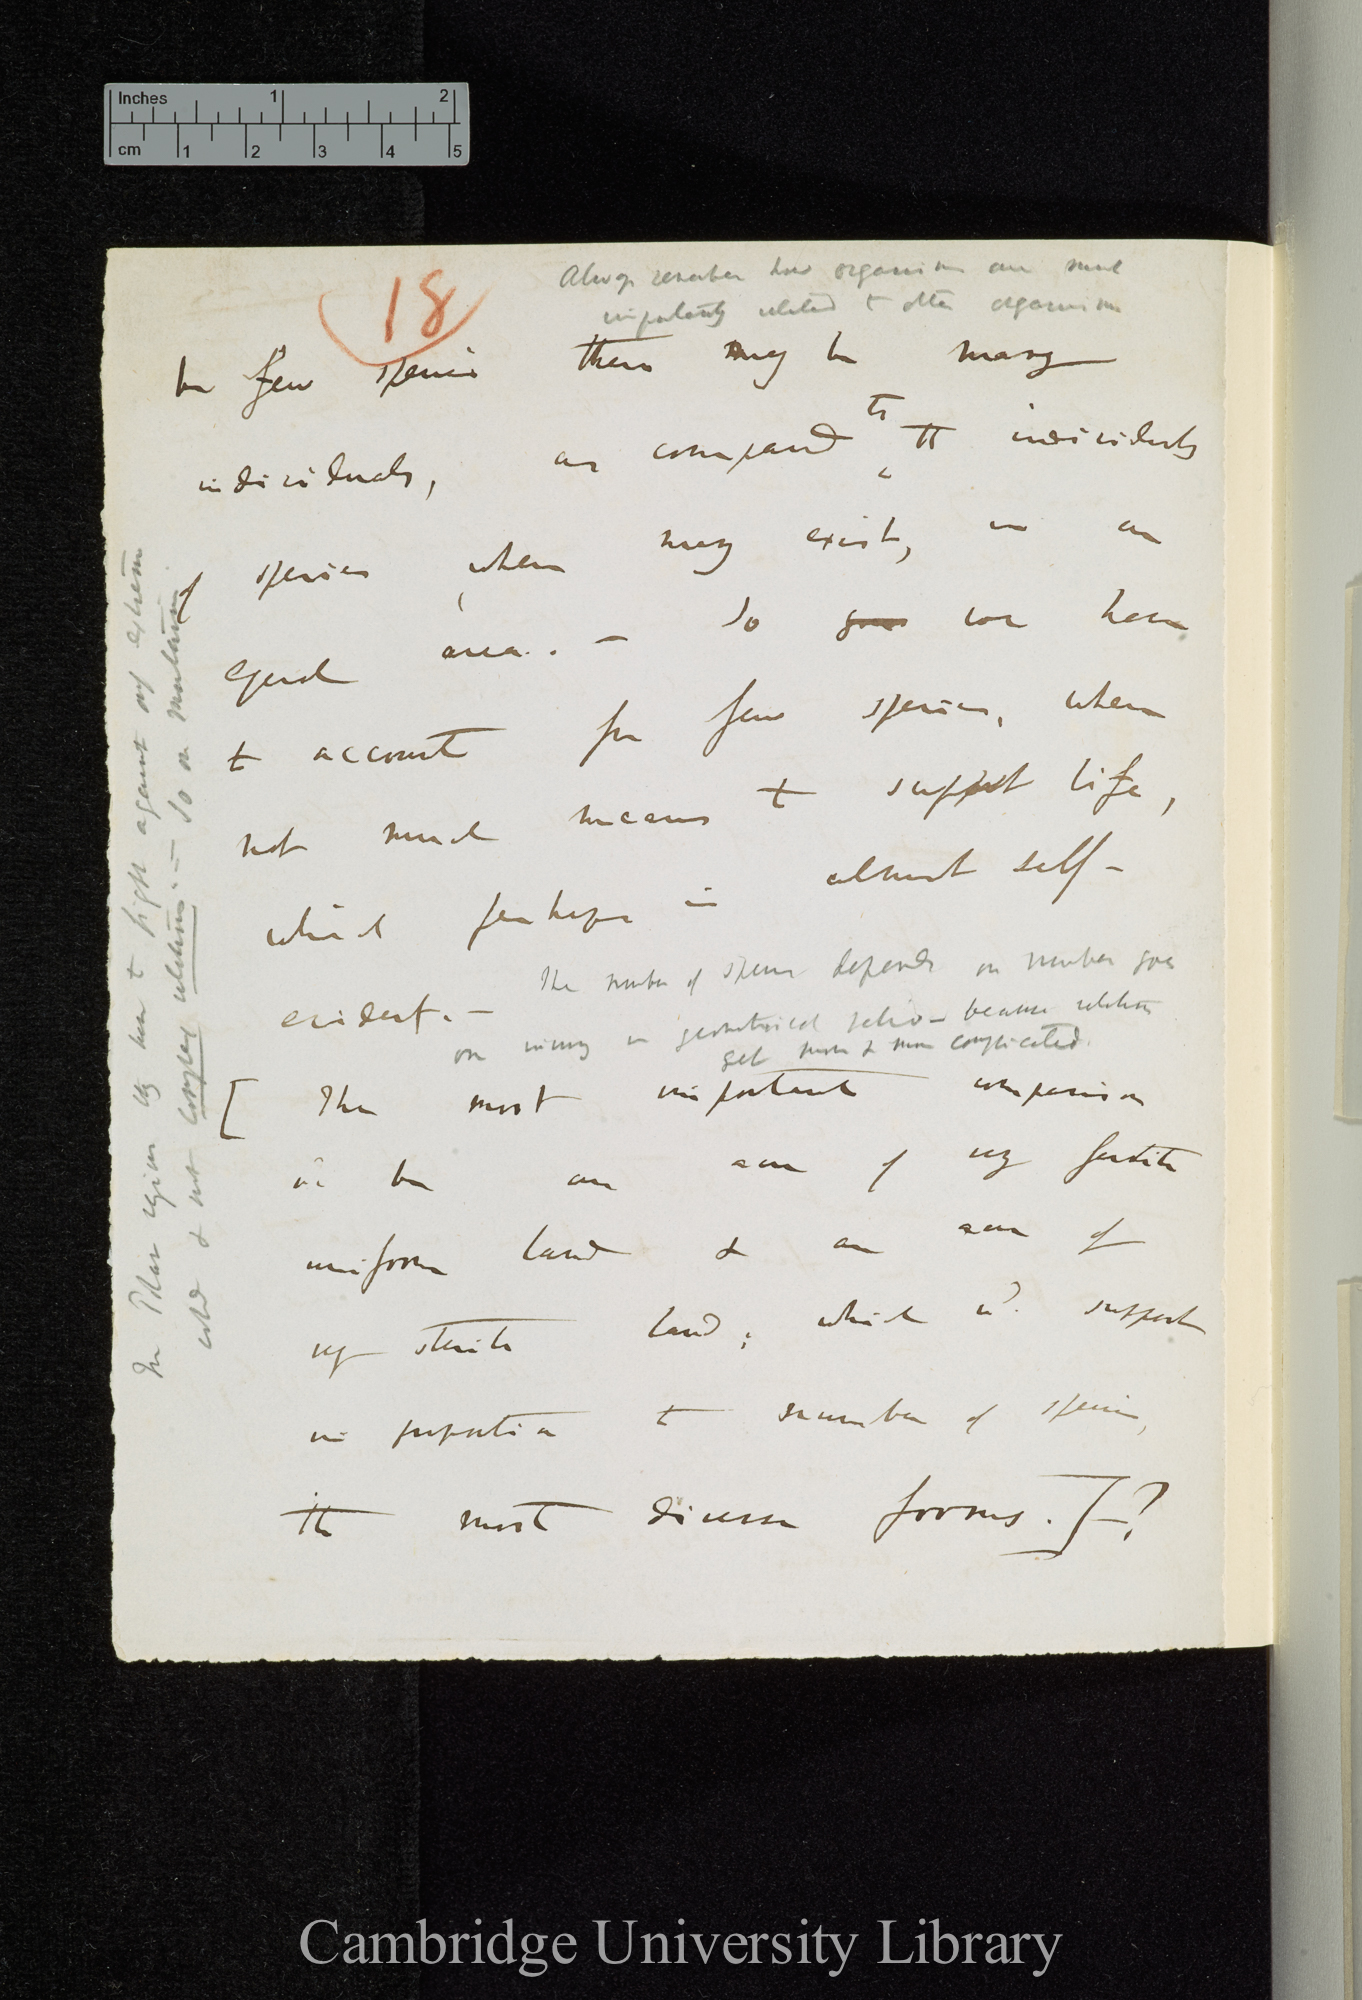 Inches 1 2
cm 1 2 3 4 5
18
Always remember how organism are most
importantly related to other organism
be few species there may be many
individuals, as compared to the individuals
of species, where many exist, in an
equal area. — So we have
to account for few species, where
not much means to support life,
which perhaps is almost self-
evident. —
The number of species depends on number goes
on in geometrical ratio — because relations
get more & more complicated.
[ The most important comparison
wd be an area of very fertile
uniform land & an area of
very sterile land; which wd. support
in proportion to number of species,
the most diverse forms. ]—?
In Polar region they have to fight against only extreme
cold & not complex relations. — So on mountains.
Cambridge University Library